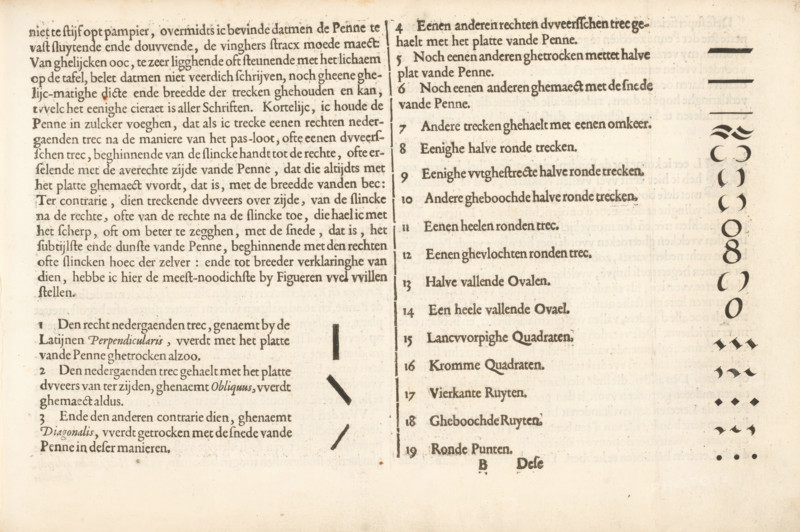 niet te stijf opt pampier, overmidts ic bevinde datmen de Penne te
vast sluytende ende douvvende, de vinghers stracx moede maect:
Van ghelijcken ooc, te zeer ligghende oft steunende met het lichaem
op de tafel, belet datmen niet veerdich schrijven, noch gheene ghe-
lijc-matighe dicte ende breedde der trecken ghehouden en kan,
tvvelc het eenighe cieraet is aller Schriften. Kortelijc, ic houde de
Penne in zulcker voeghen, dat als ic trecke eenen rechten neder-
gaenden trec na de maniere van het pas-loot, ofte eenen dvveers-
schen trec, beghinnende van de slincke handt tot de rechte, ofte er-
selende met de averechte zijde vande Penne, dat die altijdts met
het platte ghemaect vvordt, dat is, met de breedde vanden bec:
Ter contrarie, dien treckende dvveers over zijde, van de slincke
na de rechte, ofte van de rechte na de slincke toe, die hael ic met
het scherp, oft om beter te zegghen, met de snede, dat is, het
subtijlste ende dunste vande Penne, beghinnende met den rechten
ofte slincken hoec der zelver: ende tot breeder verklaringhe van
dien, hebbe ic hier de meest-noodichste by Figueren vvel vvillen
stellen.
1 Den recht nedergaenden trec, genaemt by de
Latijnen Perpendicularis, vverdt met het platte
vande Penne ghetrocken alzoo.
2 Den nedergaenden trec gehaelt met het platte
dvveers van ter zijden, ghenaemt Obliquus, vverdt
ghemaect aldus.
3 Ende den anderen contrarie dien, ghenaemt
Diagonalis, vverdt getrocken met de snede vande
Penne in deser manieren.
4 Eenen anderen rechten dvveersschen trec ge-
haelt met het platte vande Penne.
5 Noch eenen anderen ghetrocken mettet halve
plat vande Penne.
6 Noch eenen anderen ghemaect met de snede
vande Penne.
7 Andere trecken ghehaelt met eenen omkeer.
8 Eenighe halve ronde trecken.
9 Eenighe vvtghestrecte halve ronde trecken.
10 Andere gheboochde halve ronde trecken.
11 Eenen heelen ronden trec.
12 Eenen ghevlochten ronden trec.
13 Halve vallende Ovalen.
14 Een heele vallende Ovael.
15 Lancvvorpighe Quadraten.
16 Kromme Quadraten.
17 Vierkante Ruyten.
18 Gheboochde Ruyten.
19 Ronde Punten.
B Dese